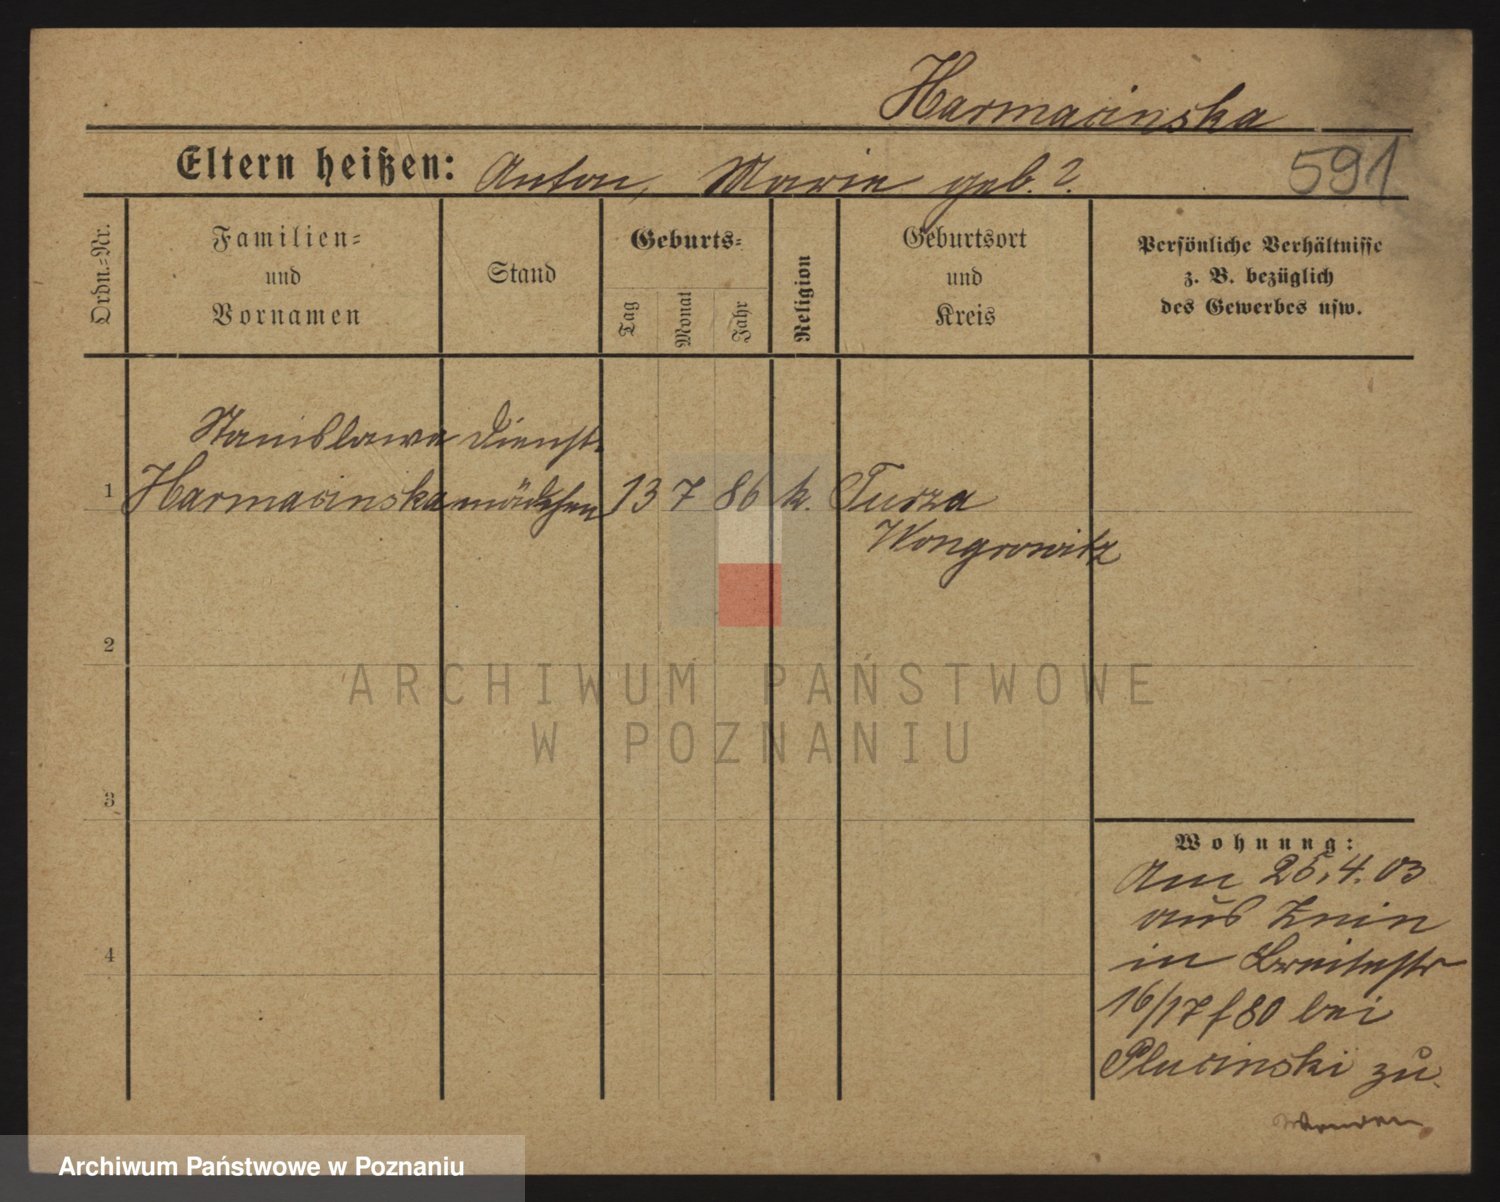 Harmacinska
Eltern heißen: Anton, Marie geb. ?.
591
Ordn.=Nr.
Familien=
und
Vornamen
Stand
Geburts=
Tag
Monat
Jahr
Religion
Geburtsort
und
Kreis
Persönliche Verhältnisse
z. B. bezüglich
des Gewerbes usw.
Stanislawa Dienst-
1 Harmacinska mädchen 13 7 86 k. Turza
Wongrowitz
2
ARCHIWUM PAŃSTWOWE
W POZNANIU
3
Wohnung:
Am 25.4.03
aus Znin
in Breitestr
4
16/17 f 80 bei
Plucinski zu.
Archiwum Państwowe w Poznaniu